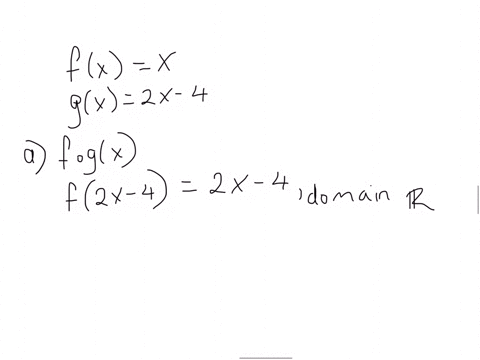 f(x) = x
g(x) = 2x - 4
a) f∘g(x)
f(2x-4) = 2x - 4, domain ℝ